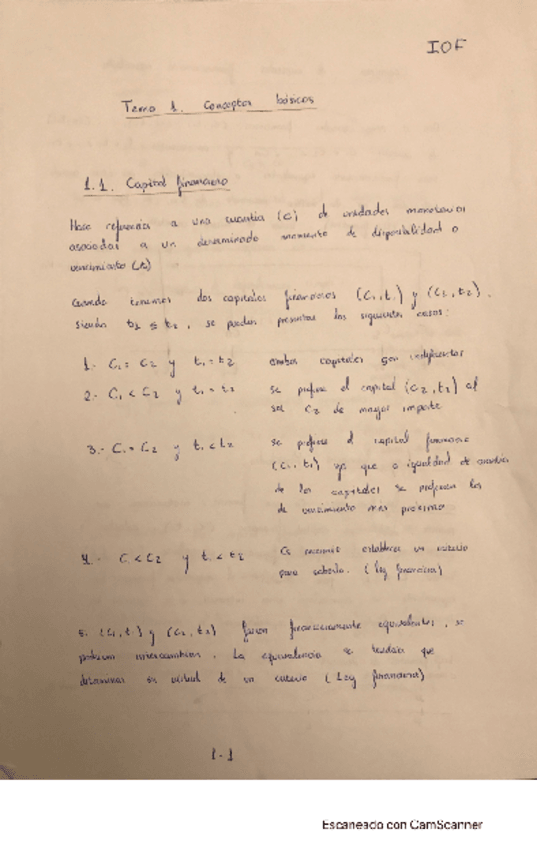 IOF
Tema 1. Conceptos básicos
1.1. Capital financiero
Hace referencia a una cuantía (C) de unidades monetarias
asociadas a un determinado momento de disponibilidad o
vencimiento (t)
Cuando tenemos dos capitales financieros (C1, t1) y (C2, t2),
siendo t1 ≤ t2, se pueden presentar los siguientes casos:
1.- C1 = C2 y t1 = t2 ambos capitales son indiferentes
2.- C1 < C2 y t1 = t2 se prefiere el capital (C2, t2) al
ser C2 de mayor importe
3.- C1 = C2 y t1 < t2 se prefiere el capital financiero
(C1, t1) ya que a igualdad de cuantía
de los capitales se prefieren los
de vencimiento más próximo
4.- C1 < C2 y t1 < t2 Es necesario establecer un criterio
para saberlo. (ley financiera)
Si (C1, t1) y (C2, t2) fueran financieramente equivalentes, se
podrían intercambiar. La equivalencia se tendría que
determinar en virtud de un criterio (Ley financiera)
1-1
Escaneado con CamScanner